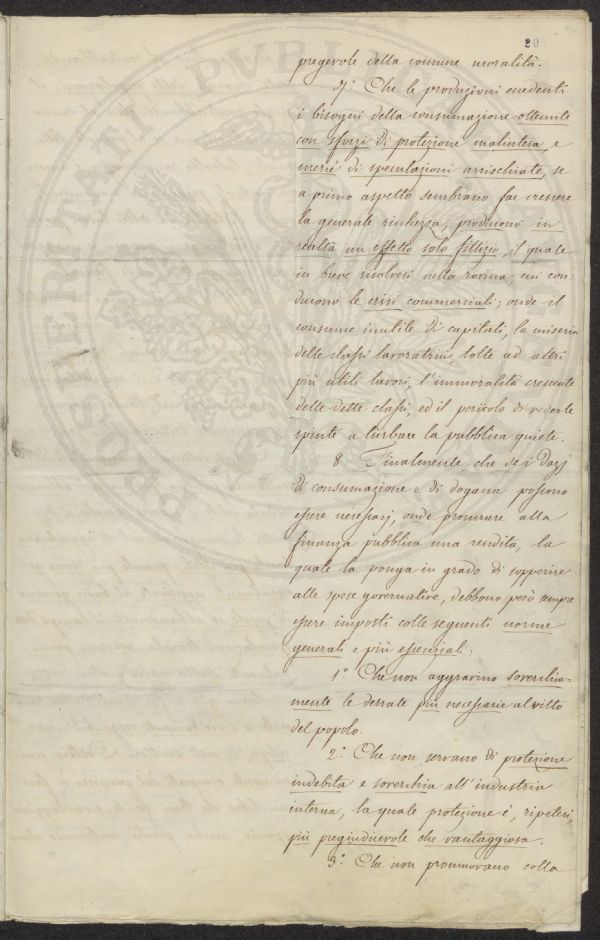 20
pregevole della comune moralità.
7.° Che le produzioni eccedenti
i bisogni della consumazione ottenute
con sforzi di protezione malintesa, e
mercé di speculazioni arrischiate, se
a primo aspetto sembrano far crescere
la generale ricchezza, producono in
realtà un effetto solo fittizio, il quale
in breve risolvesi nella rovina, cui con-
ducono le crisi commerciali; onde il
consumo inutile di capitali, la miseria
delle classi lavoratrici, tolte ad altri
più utili lavori, l'immoralità crescente
delle dette classi, ed il pericolo di vederle
spinte a turbare la pubblica quiete.
8. Finalmente, che se i Dazj
di consumazione e di dogana possono
essere necessarj, onde procurare alla
finanza pubblica una rendita, la
quale la ponga in grado di sopperire
alle spese governative, debbono però sempre
essere imposti colle seguenti norme
generali e più essenziali:
1.° Che non aggravino soverchia-
mente le derrate più necessarie al vitto
del popolo.
2.° Che non servano di protezione
indebita e soverchia all'industria
interna, la quale protezione è, ripetesi,
più pregiudicevole che vantaggiosa.
3.° Che non promuovano colla